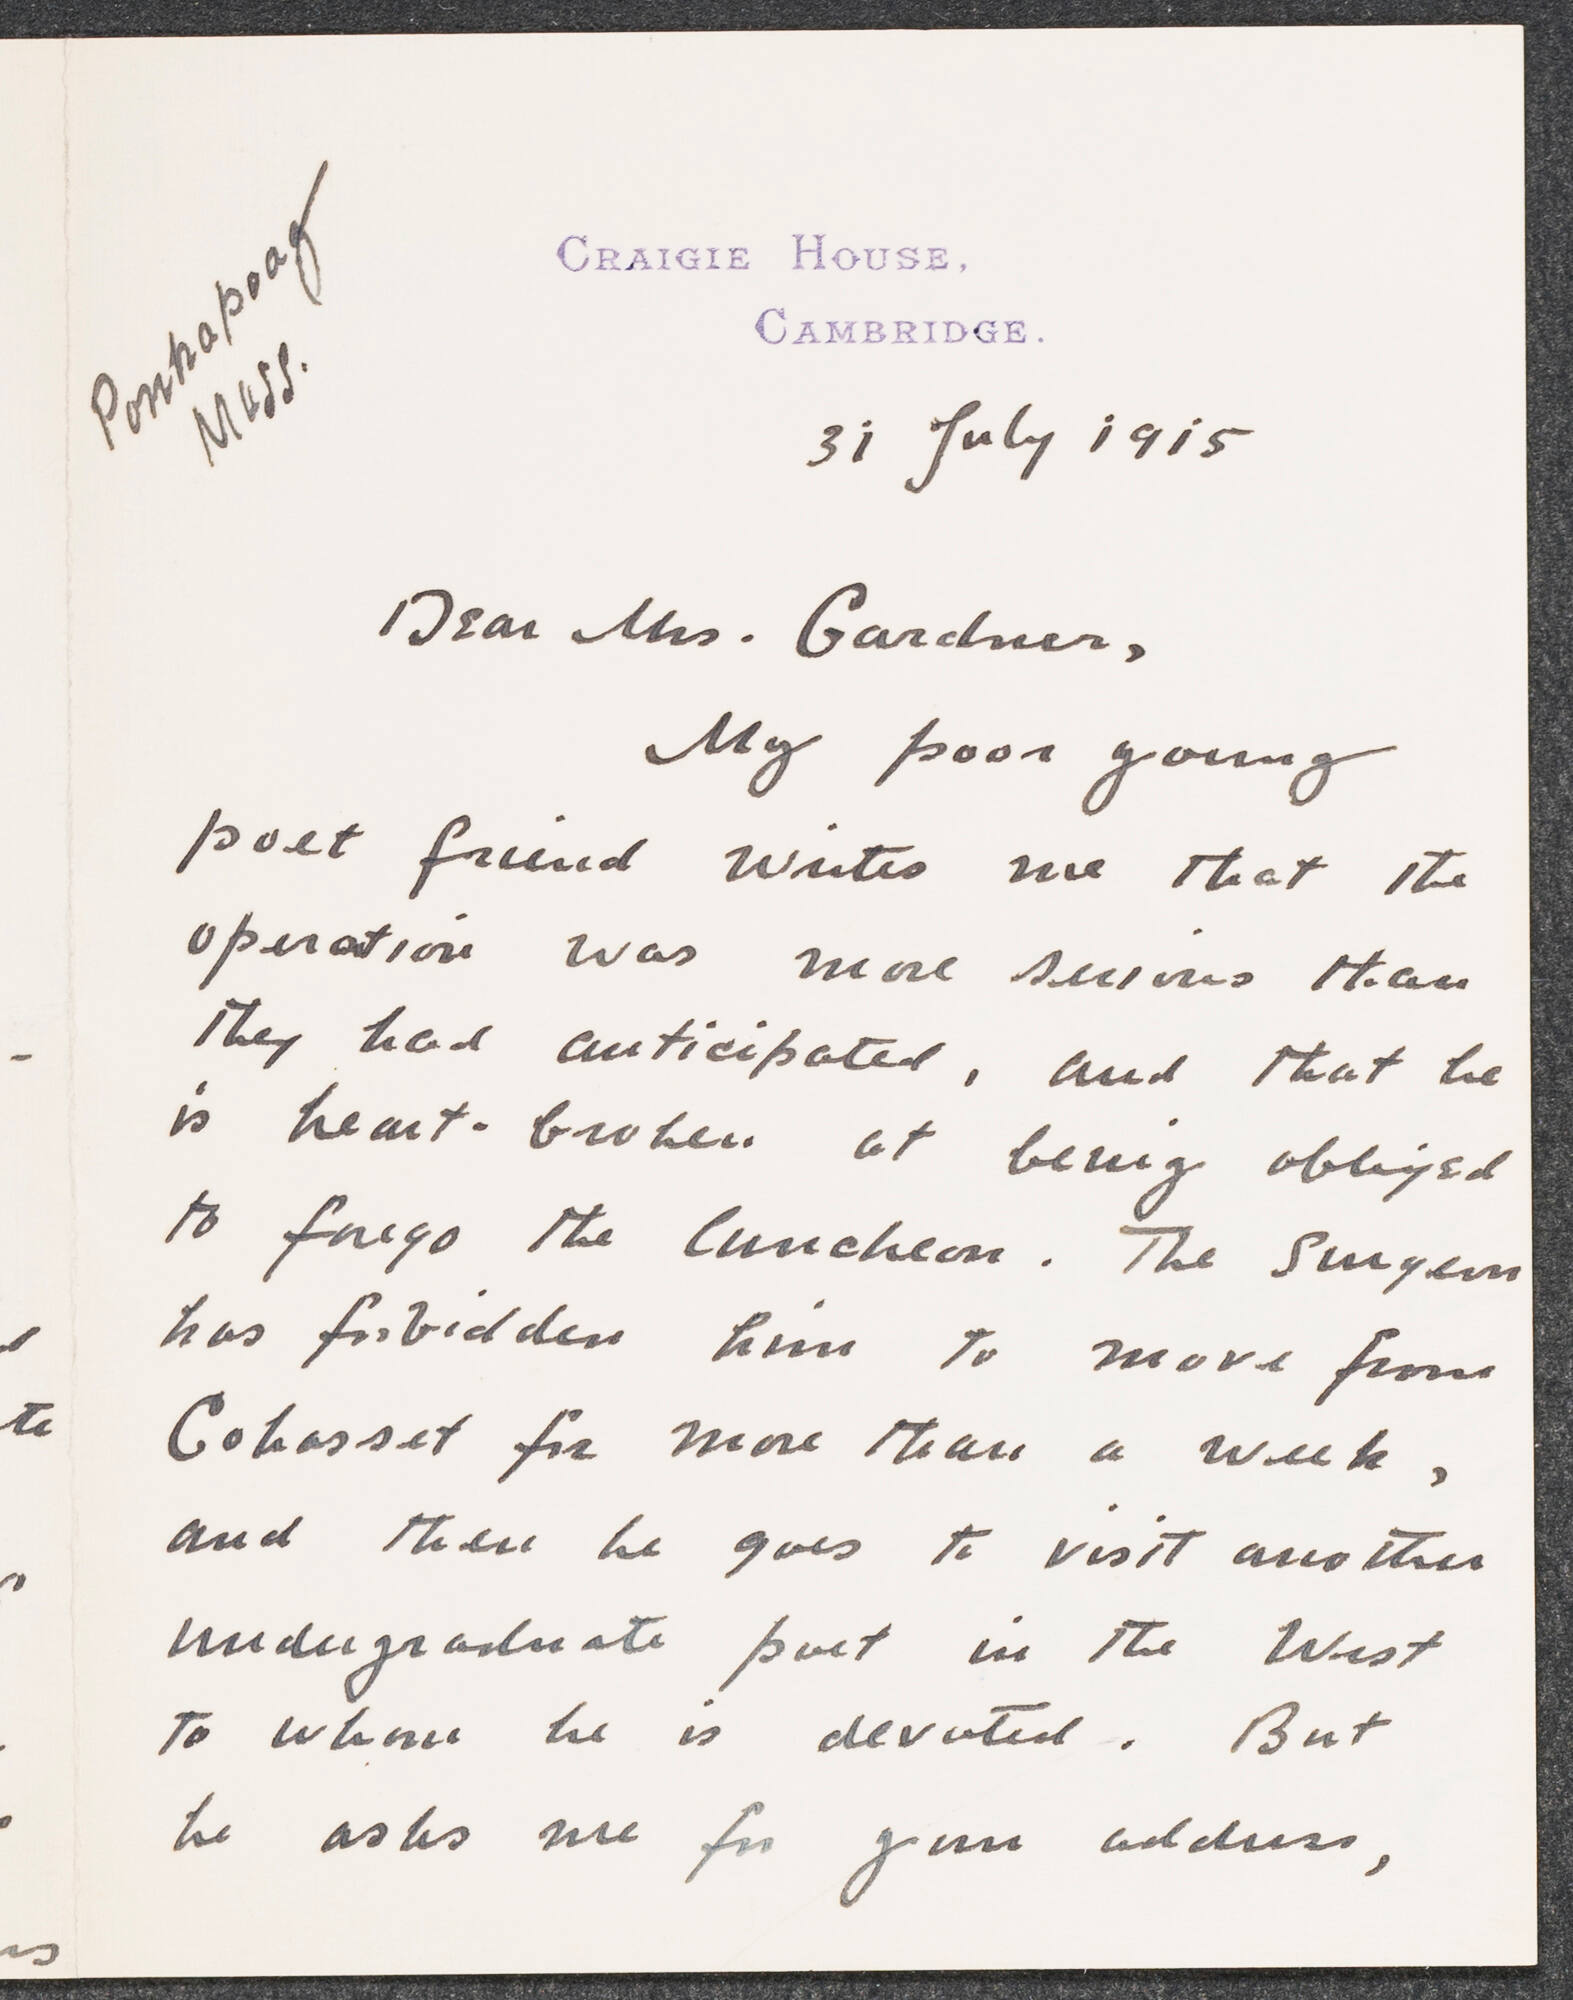 Ponkapoag
Mass.
CRAIGIE HOUSE,
CAMBRIDGE.
31 July 1915
Dear Mrs. Gardner,
My poor young
poet friend writes me that the
operation was more serious than
they had anticipated, and that he
is heart-broken at being obliged
to forego the luncheon. The Surgeon
has forbidden him to move from
Cohasset for more than a week,
and then he goes to visit another
undergraduate poet in the West
to whom he is devoted. But
he asks me for your address,